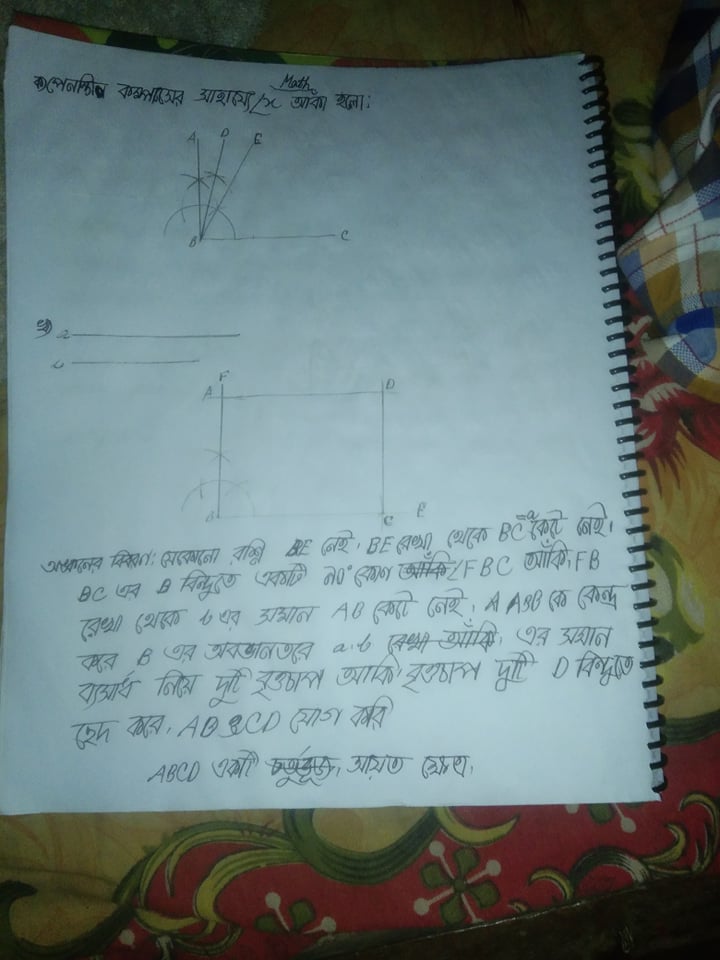 Math
কম্পাসের সাহায্যে ∠x আঁকা হলো।
A D E
B C
খ) a
b
F
A D
B C E
অঙ্কনের বিবরণ: যেকোনো রশ্মি BE নেই। BE রেখা থেকে BC = a কেটে নেই।
BC এর B বিন্দুতে একটি ৯০° কোণ আঁকি ∠FBC আঁকি। FB
রেখা থেকে b এর সমান AB কেটে নেই। A কে কেন্দ্র
করে B এর a, b রেখা আঁকি, এর সমান
ব্যাসার্ধ নিয়ে দুটি বৃত্তচাপ আঁকি। বৃত্তচাপ দুটি D বিন্দুতে
ছেদ করে। AB ও CD যোগ করি
ABCD একটি চর্তুভূজ, আয়ত ক্ষেত্র।